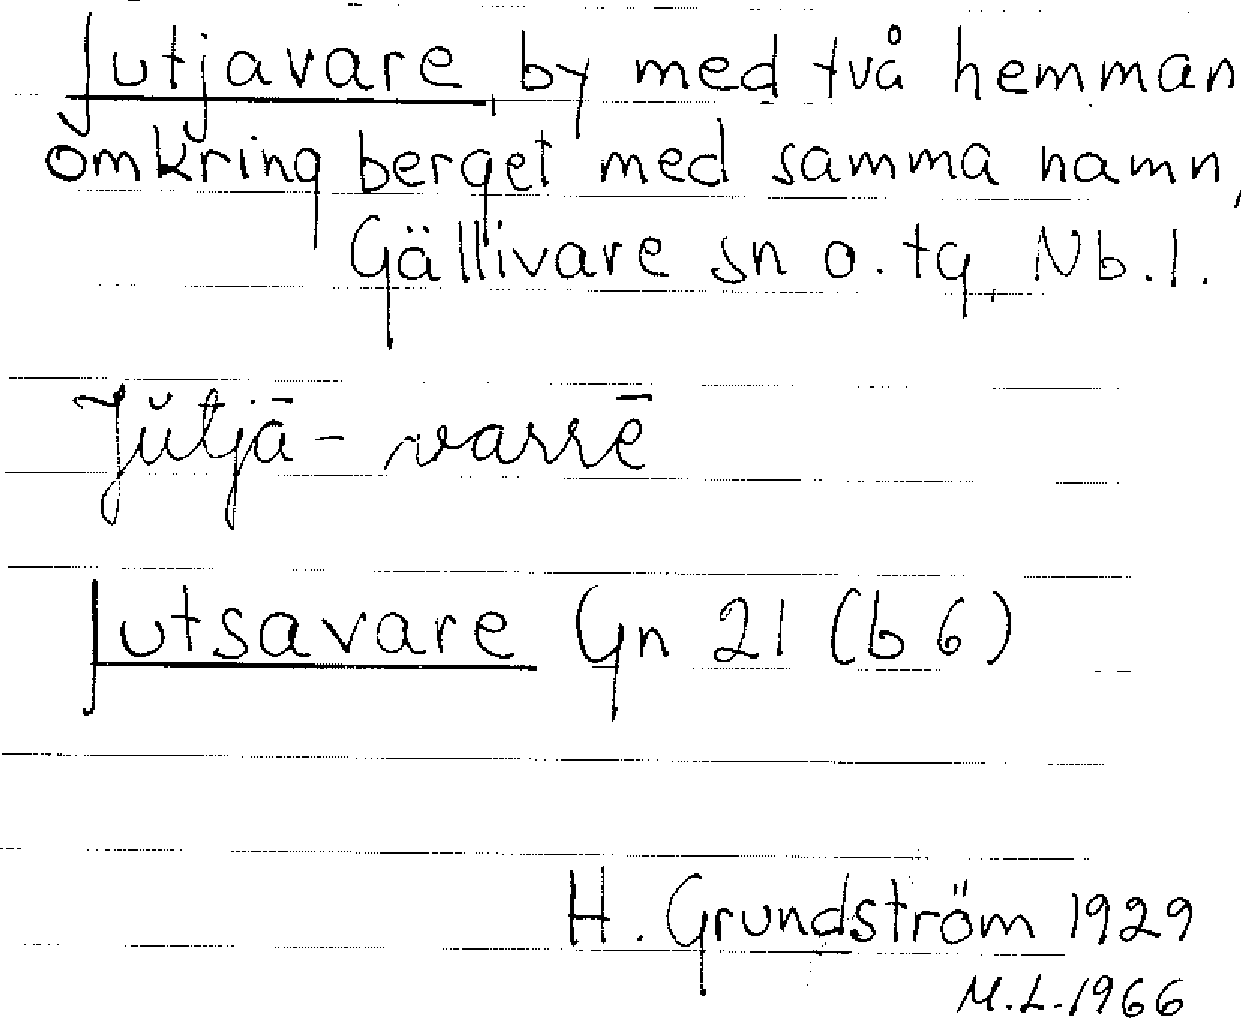 Jutjavare, by med två hemman
omkring berget med samma namn,
Gällivare sn o. tg, Nb. l.
Jŭtjā-varrē
Jutsavare Gn 21 (b 6)
H. Grundström 1929
M.L. 1966